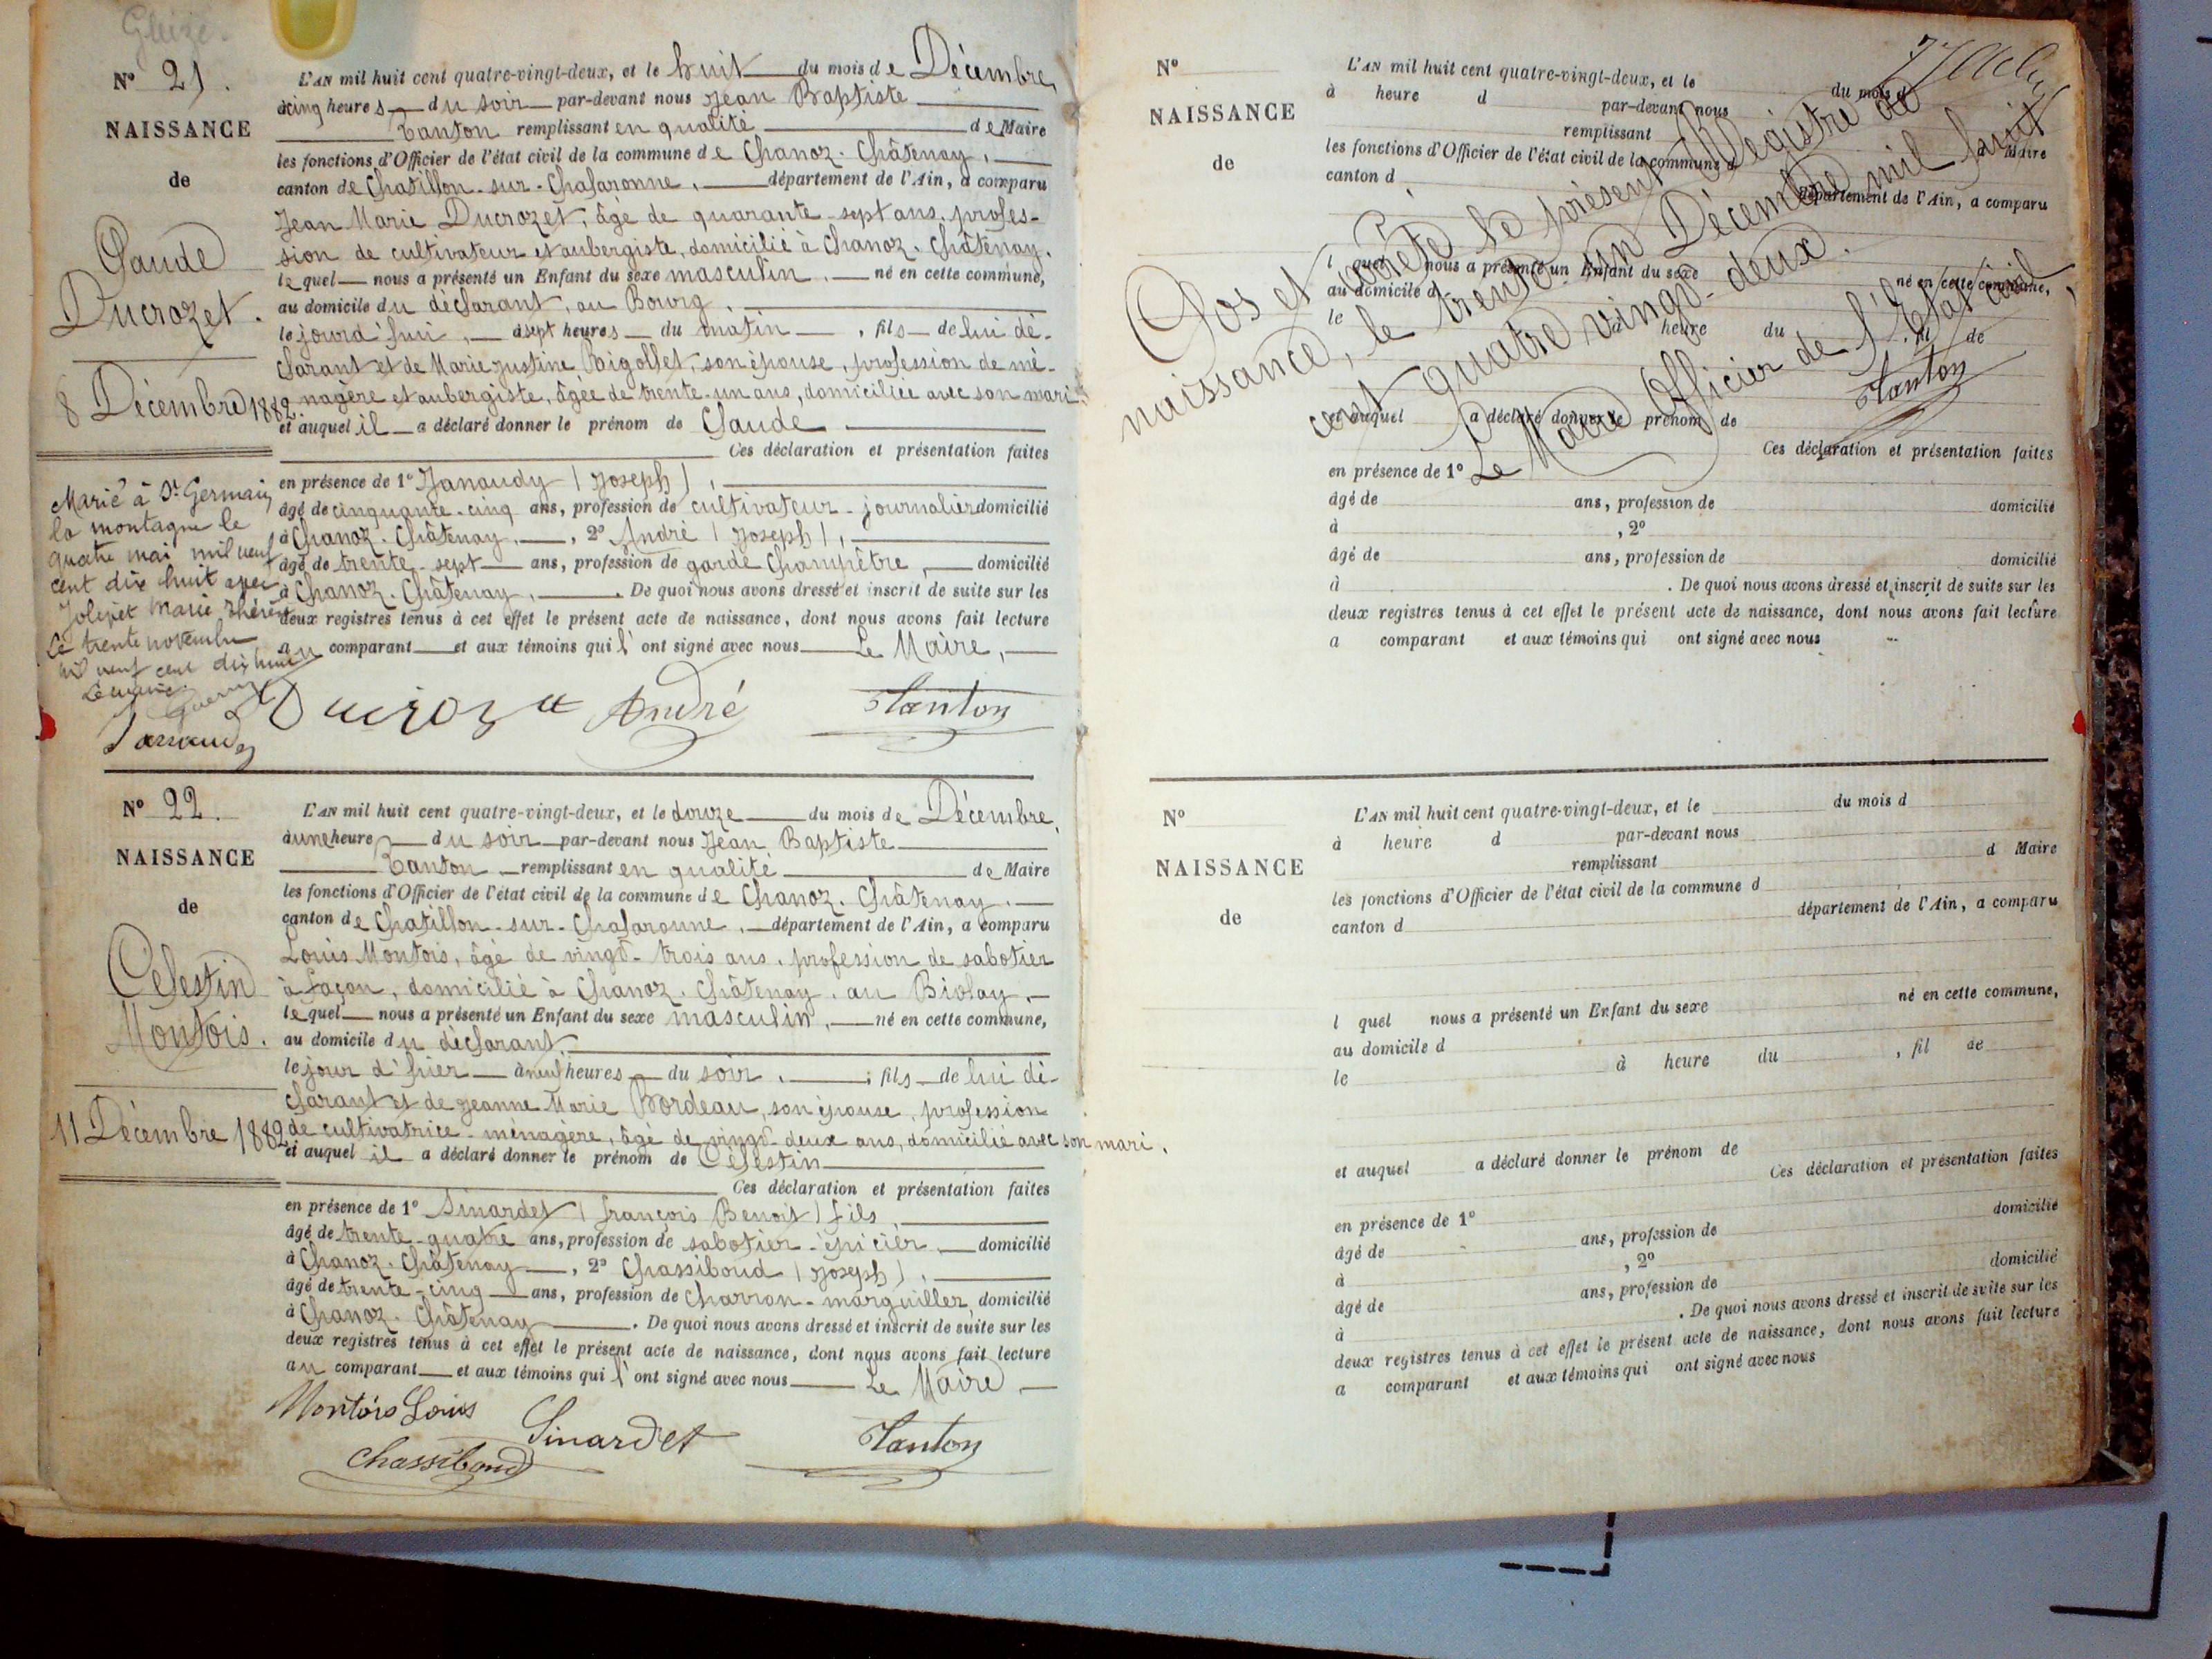 Gleizé
N° 21.
NAISSANCE
de
Claude
Ducrozet.
8 Décembre 1882.
Marié à St Germain
la montagne le
quatre mai mil neuf
cent dix huit avec
Marie
Le trente novembre
mil neuf cent dix huit
L'AN mil huit cent quatre-vingt-deux, et le huit du mois de Décembre,
à cinq heures du soir par-devant nous Jean Baptiste
Tanton remplissant en qualité de Maire
les fonctions d'Officier de l'état civil de la commune de Chanoz-Châtenay,
canton de Chatillon-sur-Chalaronne, département de l'Ain, a comparu
Jean Marie Ducrozet, âgé de quarante-sept ans, profes-
sion de cultivateur et aubergiste, domicilié à Chanoz-Châtenay.
lequel nous a présenté un Enfant du sexe masculin, né en cette commune,
au domicile du déclarant, au Bourg
le jourd'hui, à sept heures du matin, fils de lui dé-
clarant et de Marie Justine Bigollet, son épouse, profession de mé-
nagère et aubergiste, âgée de trente-un ans, domiciliée avec son mari.
et auquel il a déclaré donner le prénom de Claude
Ces déclaration et présentation faites
en présence de 1° Janaudy (Joseph),
âgé de cinquante-cinq ans, profession de cultivateur-journalier domicilié
à Chanoz-Châtenay, 2° André (Joseph),
âgé de trente-sept ans, profession de garde Champêtre, domicilié
à Chanoz-Châtenay. De quoi nous avons dressé et inscrit de suite sur les
deux registres tenus à cet effet le présent acte de naissance, dont nous avons fait lecture
au comparant et aux témoins qui l'ont signé avec nous Le Maire,
Ducrozet André Tanton
N° 22.
NAISSANCE
de
Célestin
Montois.
11 Décembre 1882
L'AN mil huit cent quatre-vingt-deux, et le douze du mois de Décembre,
à une heure du soir par-devant nous Jean Baptiste
Tanton remplissant en qualité de Maire
les fonctions d'Officier de l'état civil de la commune de Chanoz-Châtenay.
canton de Chatillon-sur-Chalaronne, département de l'Ain, a comparu
Louis Montois, âgé de vingt-trois ans, profession de sabotier
à façon, domicilié à Chanoz-Châtenay, au Biolay,
lequel nous a présenté un Enfant du sexe masculin, né en cette commune,
au domicile du déclarant,
le jour d'hier à neuf heures du soir, fils de lui dé-
clarant et de Jeanne Marie Bordeau, son épouse, profession
de cultivatrice-ménagère, âgé de vingt-deux ans, domicilié avec son mari.
et auquel il a déclaré donner le prénom de Célestin
Ces déclaration et présentation faites
en présence de 1° Sinardet (françois Benoit) fils,
âgé de trente-quatre ans, profession de sabotier-épicier, domicilié
à Chanoz-Châtenay, 2° Chassiboud (Joseph),
âgé de trente-cinq ans, profession de Charron-marguiller, domicilié
à Chanoz-Châtenay. De quoi nous avons dressé et inscrit de suite sur les
deux registres tenus à cet effet le présent acte de naissance, dont nous avons fait lecture
au comparant et aux témoins qui l'ont signé avec nous Le Maire,
Montois Louis Sinardet Tanton
Chassiboud
N°
NAISSANCE
de
L'AN mil huit cent quatre-vingt-deux, et le du mois d
à heure d par-devant nous
remplissant d Maire
les fonctions d'Officier de l'état civil de la commune d
canton d département de l'Ain, a comparu
l quel nous a présenté un Enfant du sexe né en cette commune,
au domicile d
le à heure du , fil de
et auquel a déclaré donner le prénom de
Ces déclaration et présentation faites
en présence de 1°
âgé de ans, profession de domicilié
à , 2°
âgé de ans, profession de domicilié
à . De quoi nous avons dressé et inscrit de suite sur les
deux registres tenus à cet effet le présent acte de naissance, dont nous avons fait lecture
a comparant et aux témoins qui ont signé avec nous
Clos et arrêté le présent Registre de
naissance, le trente-un Décembre mil huit
cent quatre vingt-deux.
Le Maire Officier de l'Etat civil,
Tanton
N°
NAISSANCE
de
L'AN mil huit cent quatre-vingt-deux, et le du mois d
à heure d par-devant nous
remplissant d Maire
les fonctions d'Officier de l'état civil de la commune d
canton d département de l'Ain, a comparu
l quel nous a présenté un Enfant du sexe né en cette commune,
au domicile d
le à heure du , fil de
et auquel a déclaré donner le prénom de
Ces déclaration et présentation faites
en présence de 1°
âgé de ans, profession de domicilié
à , 2°
âgé de ans, profession de domicilié
à . De quoi nous avons dressé et inscrit de suite sur les
deux registres tenus à cet effet le présent acte de naissance, dont nous avons fait lecture
a comparant et aux témoins qui ont signé avec nous